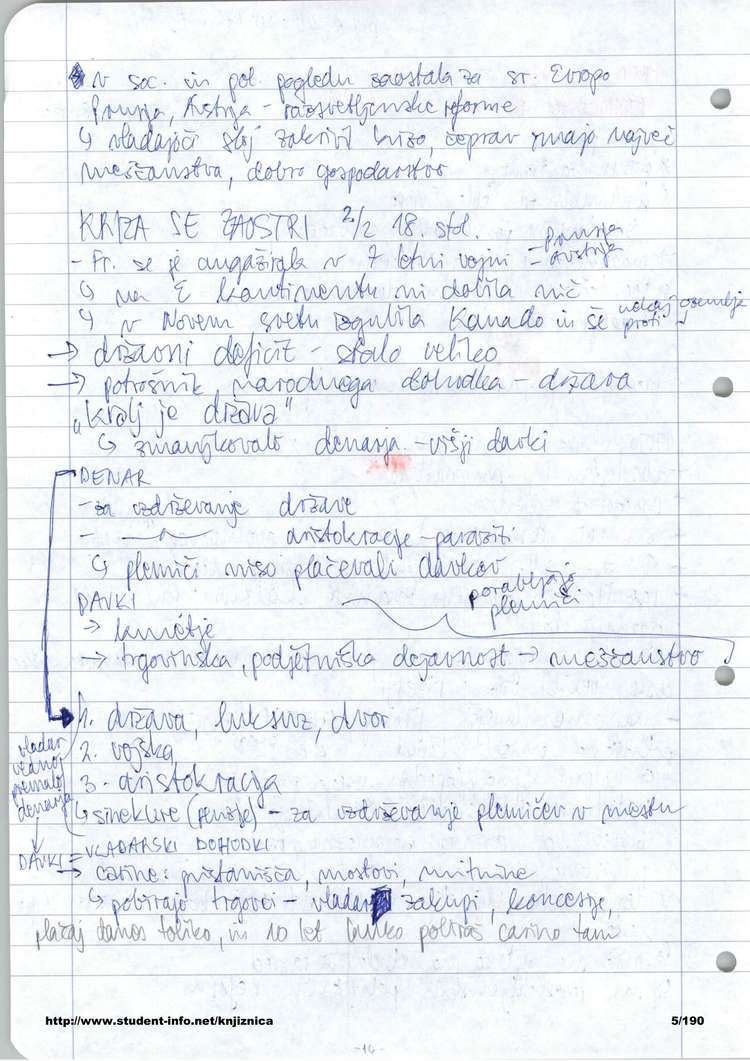 v soc. in pol. pogledu zaostala za sr. Evropo
Prusija, Avstrija - razsvetljenske reforme
↳ vladajoči sloj zakrivil krizo, čeprav imajo največ
meščanstva, dobro gospodarstvo
KRIZA SE ZAOSTRI 2/2 18. stol.
- Fr. se je angažirala v 7 letni vojni = Prusija
= Avstrija
↳ na E kontinentu ni dobila nič
↳ v Novem svetu izgubila Kanado in še nekaj ozemlja
proti
→ državni deficit - stalo veliko
→ potrošnik narodnega dohodka - država
"Kralj je država"
↳ zmanjkovalo denarja - višji davki
DENAR
- za vzdrževanje države
- aristokracije - paraziti
↳ plemiči niso plačevali davkov
DAVKI
porabljajo
plemiči
→ kmetje
→ trgovinska, podjetniška dejavnost → meščanstvo
1. država, luksuz, dvor
2. vojska
3. aristokracija
vladar
vedno
premalo
denarja
↳ sinekure (penzije) - za vzdrževanje plemičev v mestu
DAVKI = VLADARSKI DOHODKI
→ carine: pristanišča, mostovi, mitnine
↳ pobirajo trgovci - vladar zakupi, koncesije,
plačaj danes toliko, in 10 let lahko pobiraš carino tam
http://www.student-info.net/knjiznica
5/190
-14-